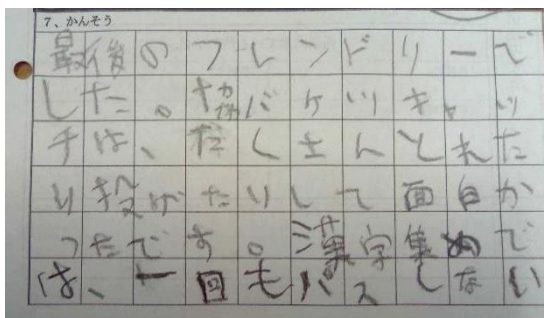 7、かんそう
最後のフレンドリーで
した。なかバケツキャッ
チは、たくさんとれた
り投げたりして面白か
ったです。漢字集めで
は、一回もパスしない